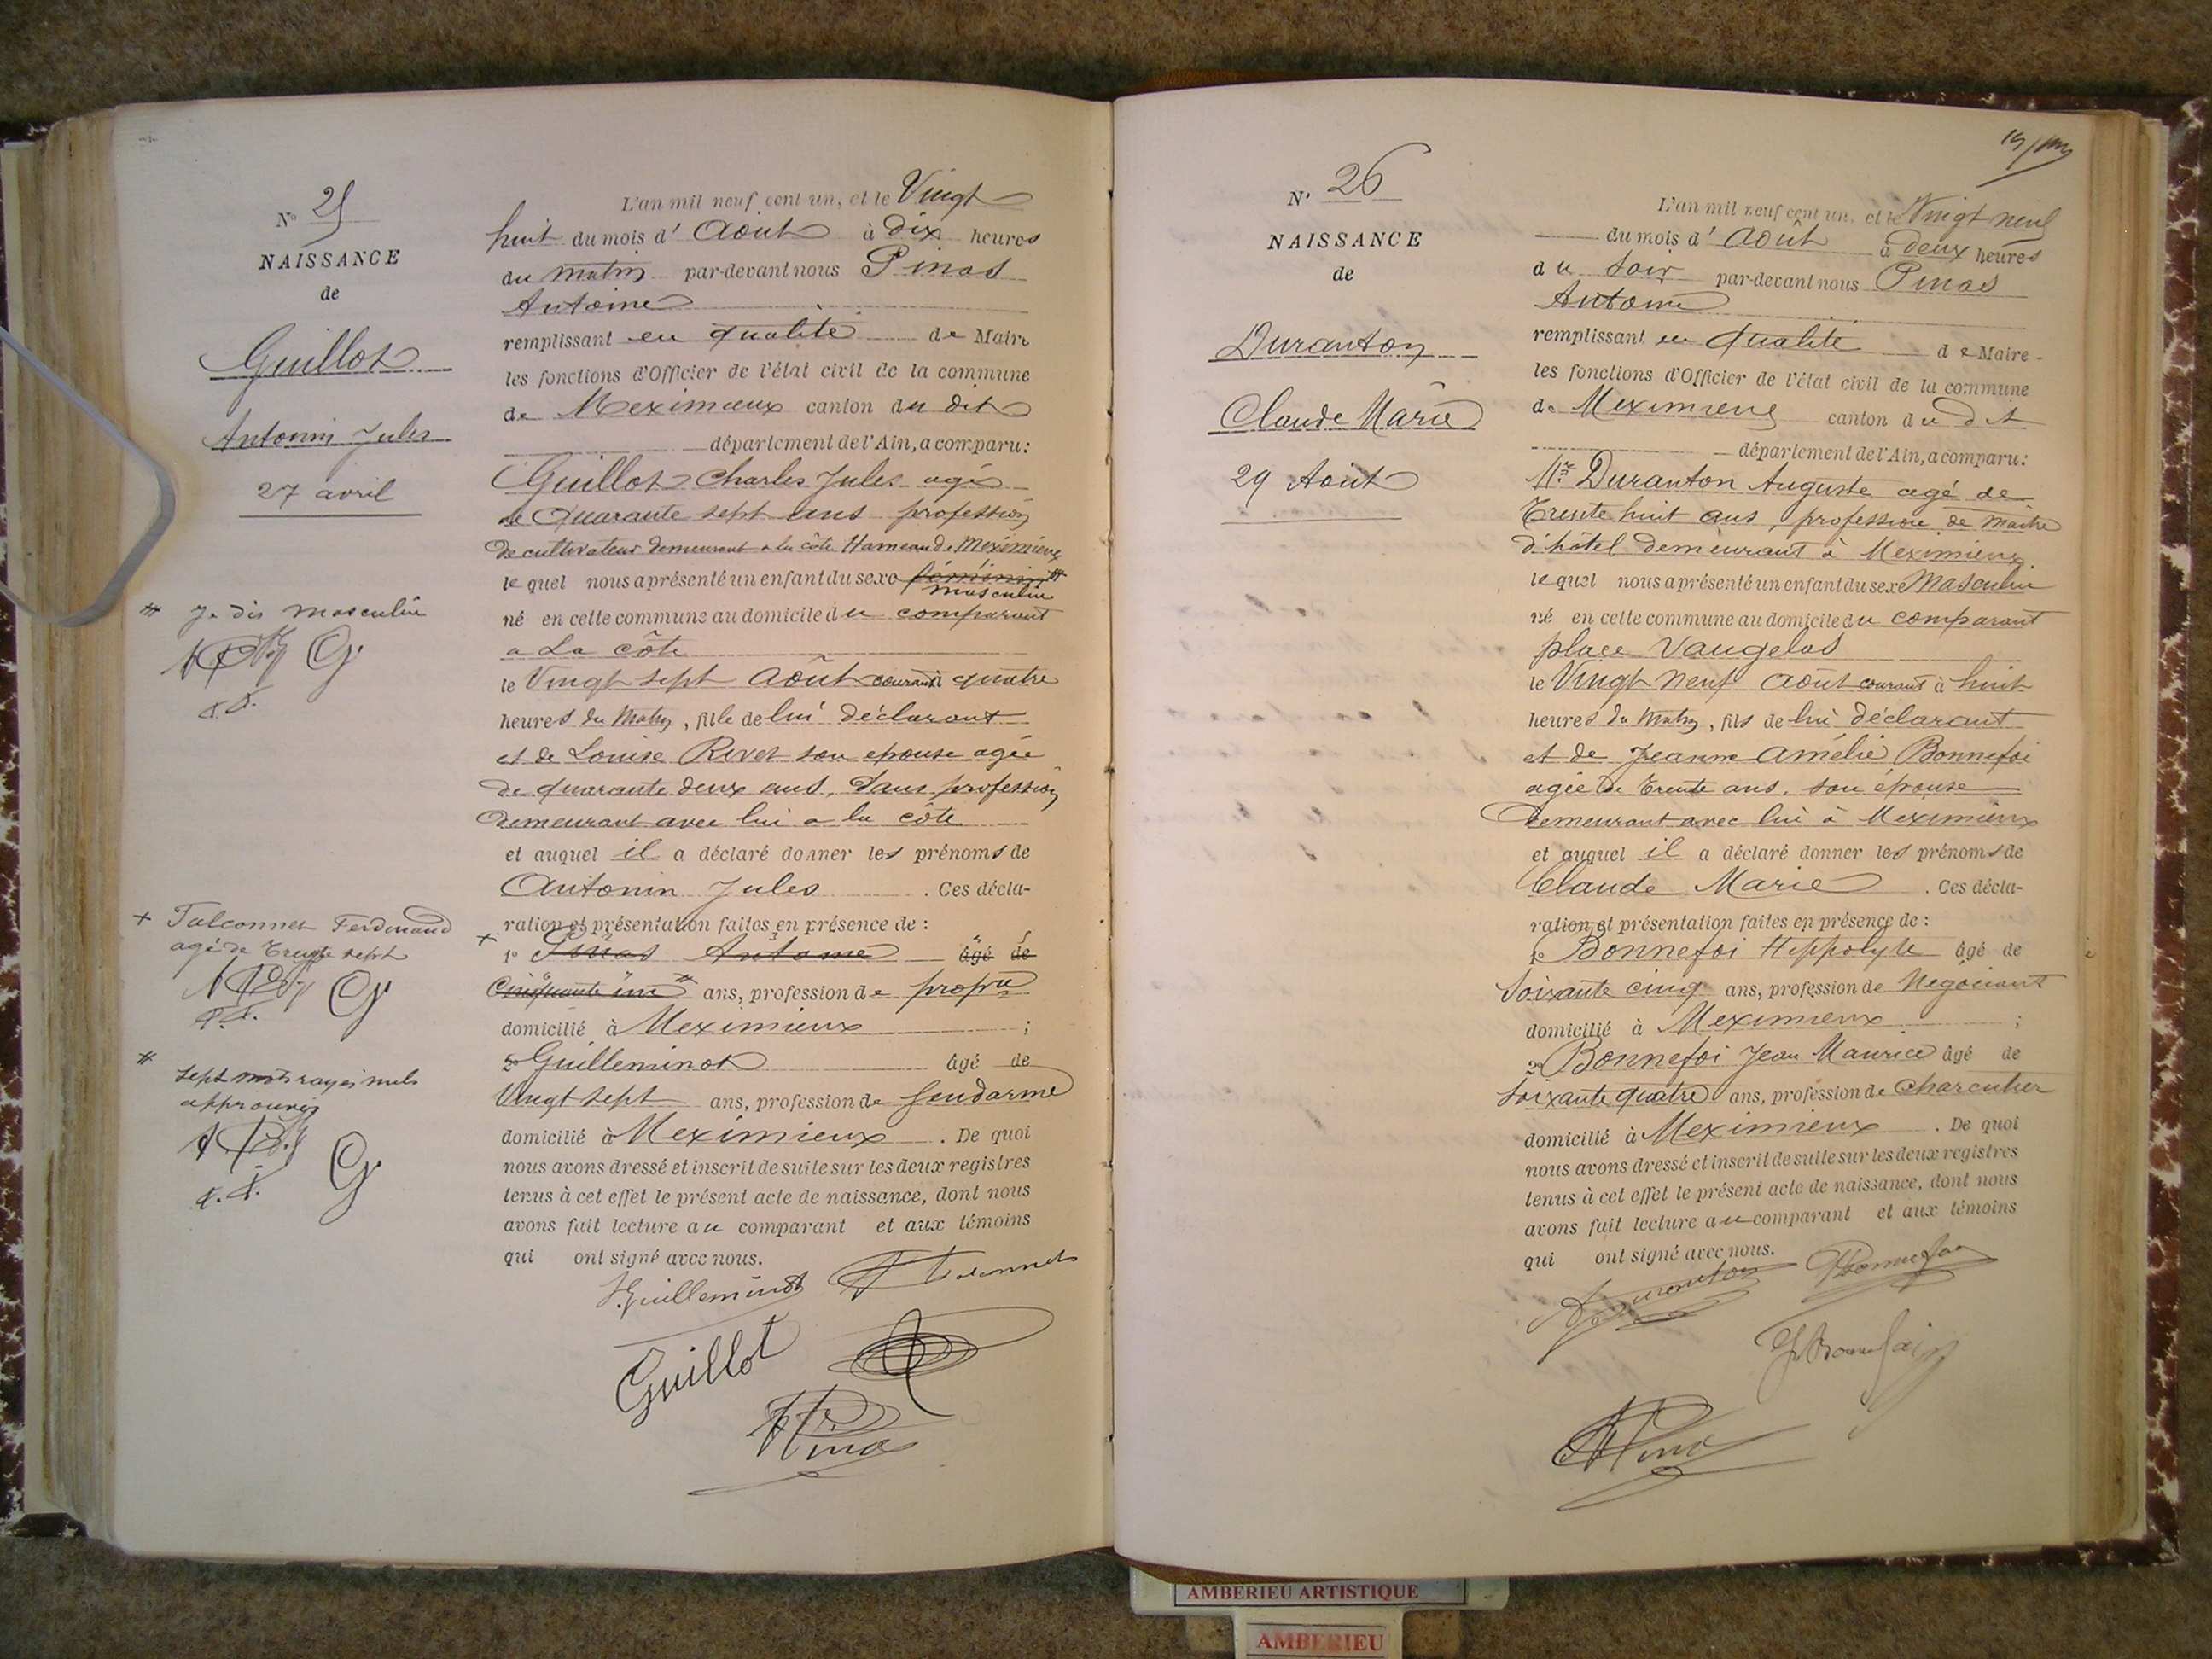 Nº 25
NAISSANCE
de
Guillot
Antonin Jules
27 avril
L'an mil neuf cent un, et le Vingt
huit du mois d' Août à dix heures
du matin par-devant nous Pinas
Antoine
remplissant en qualité de Maire
les fonctions d'Officier de l'état civil de la commune
de Meximieux canton du dit
département de l'Ain, a comparu:
Guillot Charles Jules agé
de Quarante sept ans profession
de cultivateur demeurant a la côte Hameau de Meximieux
le quel nous a présenté un enfant du sexe féminin #
masculin
né en cette commune au domicile du comparant
a La côte
le Vingt sept Août courant à quatre
heures du Matin, fils de lui déclarant
et de Louise Rivet son epouse agée
de quarante deux ans, sans profession
demeurant avec lui a la côte
et auquel il a déclaré donner les prénoms de
Antonin Jules . Ces décla-
ration et présentation faites en présence de :
+ 1º Pinas Antoine âgé de
Cinquante un # ans, profession de proprre
domicilié à Meximieux ;
2º Guilleminot âgé de
Vingt sept ans, profession de Gendarme
domicilié à Meximieux . De quoi
nous avons dressé et inscrit de suite sur les deux registres
tenus à cet effet le présent acte de naissance, dont nous
avons fait lecture au comparant et aux témoins
qui ont signé avec nous.
Guilleminot
Guillot
Pinas
# Je dis masculin
G.
+ Falconnet Ferdinand
agé de trente sept
G
# sept mots rayés nuls
approuvés
G
Nº 26
NAISSANCE
de
Duranton
Claude Marie
29 Août
L'an mil neuf cent un, et le Vingt neuf
du mois d' Août à deux heures
du soir par-devant nous Pinas
Antoine
remplissant en qualité de Maire
les fonctions d'Officier de l'état civil de la commune
de Meximieux canton du dit
département de l'Ain, a comparu:
Mr. Duranton Auguste agé de
Trente huit ans, profession de maitre
d'hôtel demeurant à Meximieux
le quel nous a présenté un enfant du sexe Masculin
né en cette commune au domicile du comparant
place Vaugelas
le Vingt neuf août courant à huit
heures du Matin, fils de lui déclarant
et de Jeanne Amélie Bonnefoi
agée de trente ans, son épouse
demeurant avec lui à Meximieux
et auquel il a déclaré donner les prénoms de
Claude Marie . Ces décla-
ration et présentation faites en présence de :
1º Bonnefoi Hippolyte âgé de
Soixante cinq ans, profession de Négociant
domicilié à Meximieux ;
2º Bonnefoi Jean Maurice âgé de
Soixante quatre ans, profession de Charcutier
domicilié à Meximieux . De quoi
nous avons dressé et inscrit de suite sur les deux registres
tenus à cet effet le présent acte de naissance, dont nous
avons fait lecture au comparant et aux témoins
qui ont signé avec nous.
Duranton
Bonnefoi
Pinas
AMBERIEU ARTISTIQUE
AMBERIEU